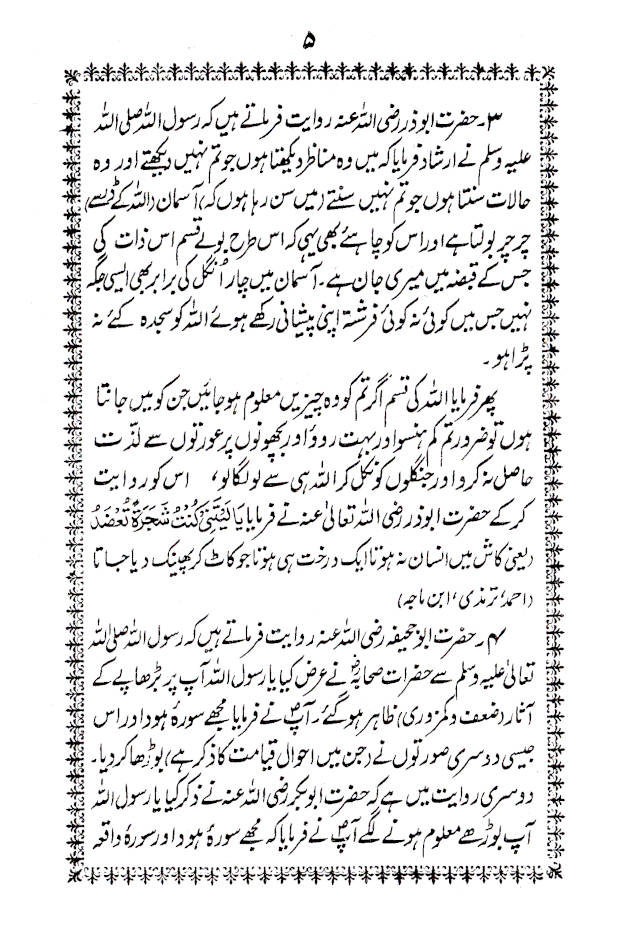 ۵
۳۔ حضرت ابوذر رضی اللہ عنہ روایت فرماتے ہیں کہ رسول اللہ صلی اللہ
علیہ وسلم نے ارشاد فرمایا کہ میں وہ مناظر دیکھتا ہوں جو تم نہیں دیکھتے اور وہ
حالات سنتا ہوں جو تم نہیں سنتے (میں سن رہا ہوں کہ) آسمان (اللہ کے ڈر سے)
چرچر بولتا ہے اور اس کو چاہئے بھی یہی کہ اس طرح بولے قسم اس ذات کی
جس کے قبضہ میں میری جان ہے۔ آسمان میں چار اُنگل کی برابر بھی ایسی جگہ
نہیں جس میں کوئی نہ کوئی فرشتہ اپنی پیشانی رکھے ہوئے اللہ کو سجدہ کئے نہ
پڑا ہو۔
پھر فرمایا اللہ کی قسم اگر تم کو وہ چیزیں معلوم ہو جائیں جن کو میں جانتا
ہوں تو ضرور تم کم ہنسو اور بہت روؤ اور بچھونوں پر عورتوں سے لذّت
حاصل نہ کرو اور جنگلوں کو نکل کر اللہ ہی سے لو لگا لو، اس کو روایت
کر کے حضرت ابوذر رضی اللہ تعالیٰ عنہ نے فرمایا يَا لَيْتَنِيْ كُنْتُ شَجَرَةً تُعْضَدُ
(یعنی کاش میں انسان نہ ہوتا ایک درخت ہی ہوتا جو کاٹ کر پھینک دیا جاتا
(احمد، ترمذی، ابن ماجہ)
۴۔ حضرت ابو جحیفہ رضی اللہ عنہ روایت فرماتے ہیں کہ رسول اللہ صلی اللہ
تعالیٰ علیہ وسلم سے حضرات صحابہؓ نے عرض کیا یا رسول اللہ آپ پر بڑھاپے کے
آثار (ضعف و کمزوری) ظاہر ہو گئے۔ آپؐ نے فرمایا مجھے سورۂ ہود اور اس
جیسی دوسری صورتوں نے (جن میں احوال قیامت کا ذکر ہے) بوڑھا کر دیا۔
دوسری روایت میں ہے کہ حضرت ابوبکر رضی اللہ عنہ نے ذکر کیا یا رسول اللہ
آپ بوڑھے معلوم ہونے لگے آپؐ نے فرمایا کہ مجھے سورۂ ہود اور سورۂ واقعہ